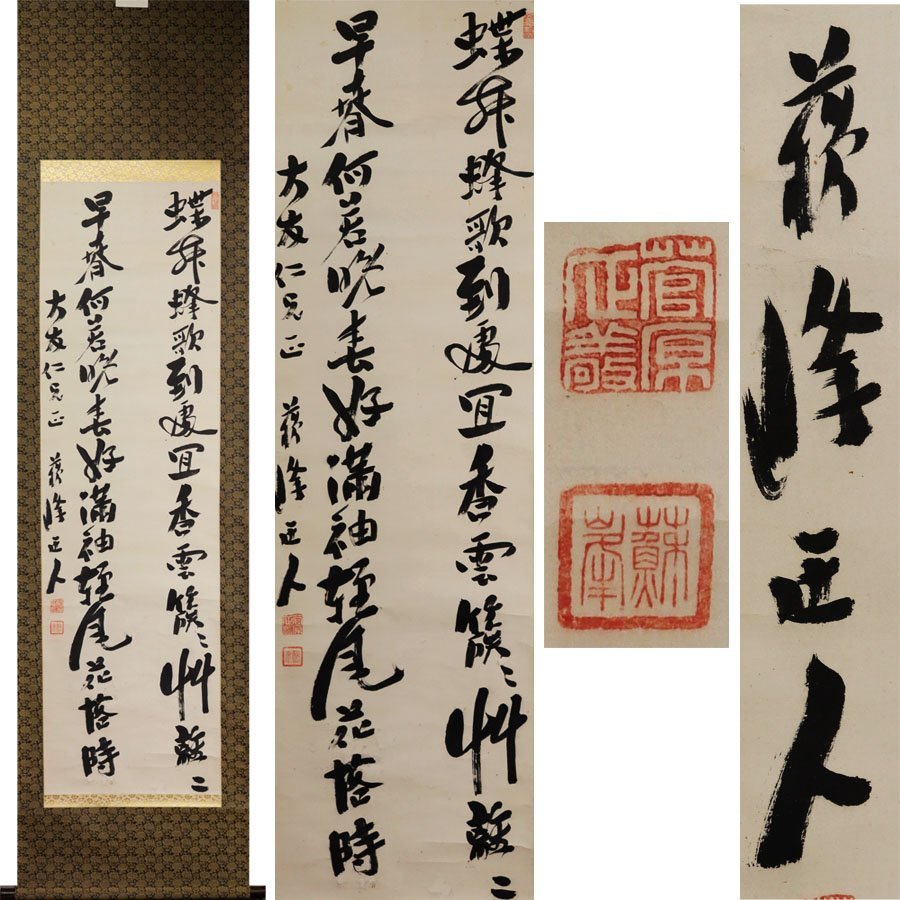 蝶舞蜂歌到處宜香雲簇々艸離々
早春何若晩春好滿袖軽風花落時
大友仁兄正 蘇峰正人
蝶舞蜂歌到處宜香雲簇々艸離々
早春何若晩春好滿袖軽風花落時
大友仁兄正 蘇峰正人
菅原正敬
蘇峯
蘇峰正人